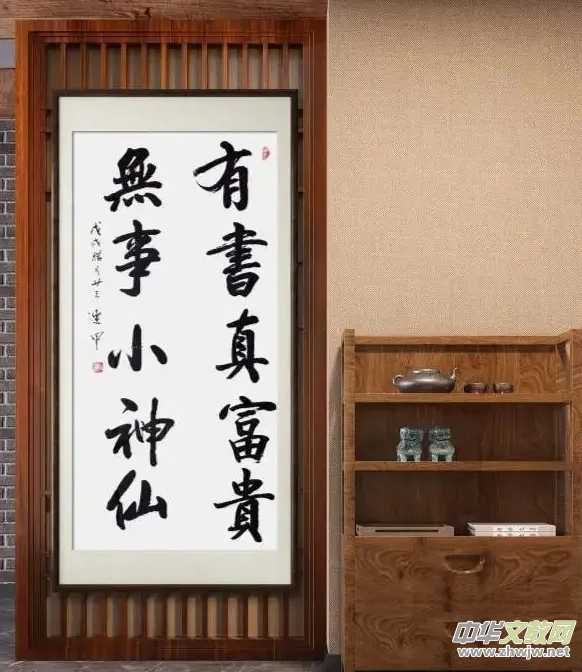 有書真富貴
無事小神仙
戊戌腊月廿三 連甲
中华文教网
www.zhwjw.net